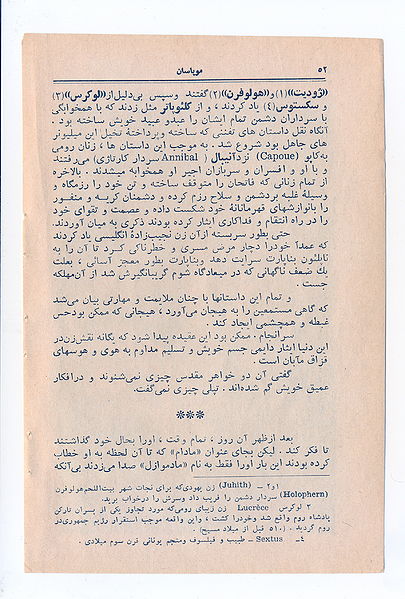 ۵۲
موپاسان
«ژودیت»(۱) و «هولوفرن»(۲) گفتند وسپس بی‌دلیل از «لوکرس»(۳)
و سکستوس(۴) یاد کردند ، و از کلئوپاتر مثل زدند که با همخوابگی
با سرداران دشمن تمام ایشان را عبدو عبید خویش ساخته بود .
آنگاه نقل داستان های تفننی که ساخته وپرداختهٔ تخیل این میلیونر
های جاهل بود شروع شد . به موجب این داستان ها ، زنان رومی
به‌کاپو (Capoue) نزد آنیبال ( Annibal سردار کارتاژی) می‌رفتند
و با او و افسران و سربازان اجیر او همخوابه میشدند . بالاخره
از تمام زنانی که فاتحان را متوقف ساخته و تن خود را رزمگاه و
وسیلهٔ غلبه بردشمن و سلاح رزم کرده و دشمنان کریه و منفور
را بانوازشهای قهرمانانهٔ خود شکست داده و عصمت و تقوای خود
را در راه انتقام و فداکاری ایثار کرده بودند ذکری به میان آوردند.
حتی بطور سربسته از آن زن نجیب‌زادهٔ انگلیسی یاد کردند
که عمداً خودرا دچار مرض مسری و خطرناکی کرد تا آن را به
ناپلئون بناپارت سرایت دهد وبناپارت بطور معجز آسائی ، بعلت
یك ضعف ناگهانی که در میعادگاه شوم گریبانگیرش شد از آن‌مهلکه
جست .
و تمام این داستانها با چنان ملایمت و مهارتی بیان می‌شد
که گاهی مستمعین را به هیجان می‌آورد ، هیجانی که ممکن بودحس
غبطه و همچشمی ایجاد کند .
سرانجام ، ممکن بود این عقیده پیدا شود که یگانه نقش‌زن‌در
این دنیا ایثار دایمی جسم خویش و تسلیم مداوم به هوی و هوسهای
قزاق مآبان است .
گفتی آن دو خواهر مقدس چیزی نمی‌شنوند و درافکار
عمیق خویش گم شده‌اند . تپلی چیزی نمی‌گفت.
***
بعد ازظهر آن روز ، تمام وقت ، اورا بحال خود گذاشتند
تا فکر کند . لیکن بجای عنوان «مادام» که تا آن لحظه به او خطاب
کرده بودند این بار اورا فقط به نام «مادموازل» صدا می‌زدند بی‌آنکه
۱و۲ـ (Juhith) زن یهودی‌که برای نجات شهر بیت‌اللحم‌هولوفرن
(Holophern) سردار دشمن را فریب داد وسرش را درخواب برید.
۳ لوکرس Lucrèce زن زیبای رومی‌که مورد تجاوز یکی از پسران تارکن
پادشاه روم واقع شد وخودرا کشت ، واین واقعه موجب استقرار رژیم جمهوری‌در
روم گردید . (۵۱۰ قبل از میلاد مسیح) .
۴ـ Sextus ـ طبیب و فیلسوف ومنجم یونانی قرن سوم میلادی .